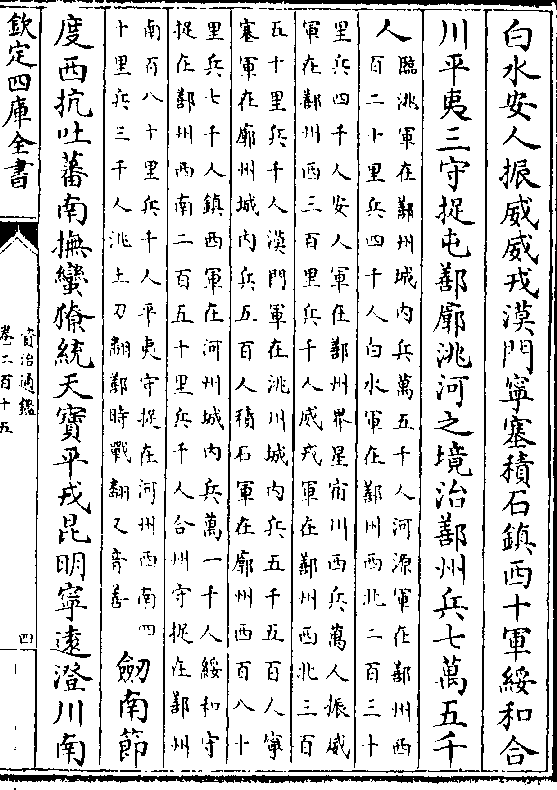 白水安人振威威戎漠門寧塞積石鎮西十軍綏和合
川平夷三守捉屯鄯廓洮河之境治鄯州兵七萬五千
人
臨洮軍在鄯州城内兵萬五千人河源軍在鄯州西
百二十里兵四千人白水軍在鄯州西北二百三十
里兵四千人安人軍在鄯州界星宿川西兵萬人振威
軍在鄯州西三百里兵千人威戎軍在鄯州西北三百
五十里兵千人漠門軍在洮州城内兵五千五百人寧
塞軍在廓州城内兵五百人積石軍在廓州西百八十
里兵七千人鎮西軍在河州城内兵萬一千人綏和守
捉在鄯州西南二百五十里兵千人合州守捉在鄯州
南百八十里兵千人平夷守捉在河州西南四
十里兵三千人洮土刀翻鄯時戰翻又音善
劒南節
度西抗吐蕃南撫蠻獠統天寶平戎昆明寧遠澄川南
欽定四庫全書
資治通鑑
卷二百十五
四